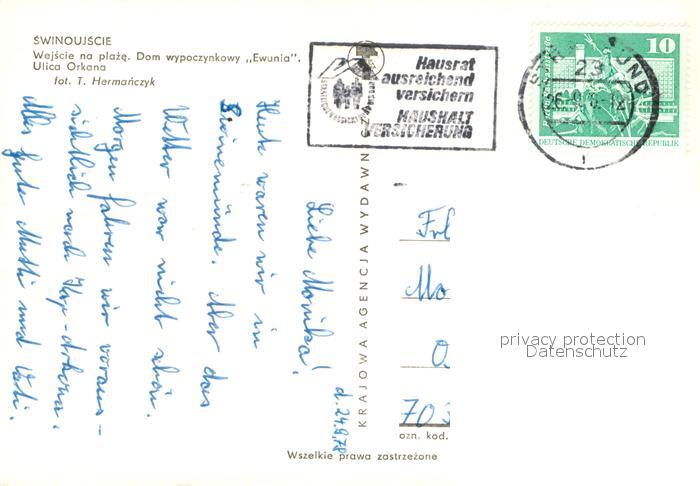 ŚWINOUJŚCIE
Wejście na plażę. Dom wypoczynkowy „Ewunia".
Ulica Orkana
fot. T. Hermańczyk
Hausrat
ausreichend
versichern
HAUSHALT
VERSICHERUNG
10
DEUTSCHE DEMOKRATISCHE REPUBLIK
d. 24.9.78
Liebe Monika!
Heute waren wir in
Swinemünde. Aber das
Wetter war nicht schön.
Morgen fahren wir voraus-
sichtlich nach
Alles gute Mutti und Vati.
KRAJOWA AGENCJA WYDAWN
Frl
Mo
O.
703
ozn. kod.
Wszelkie prawa zastrzeżone
privacy protection
Datenschutz